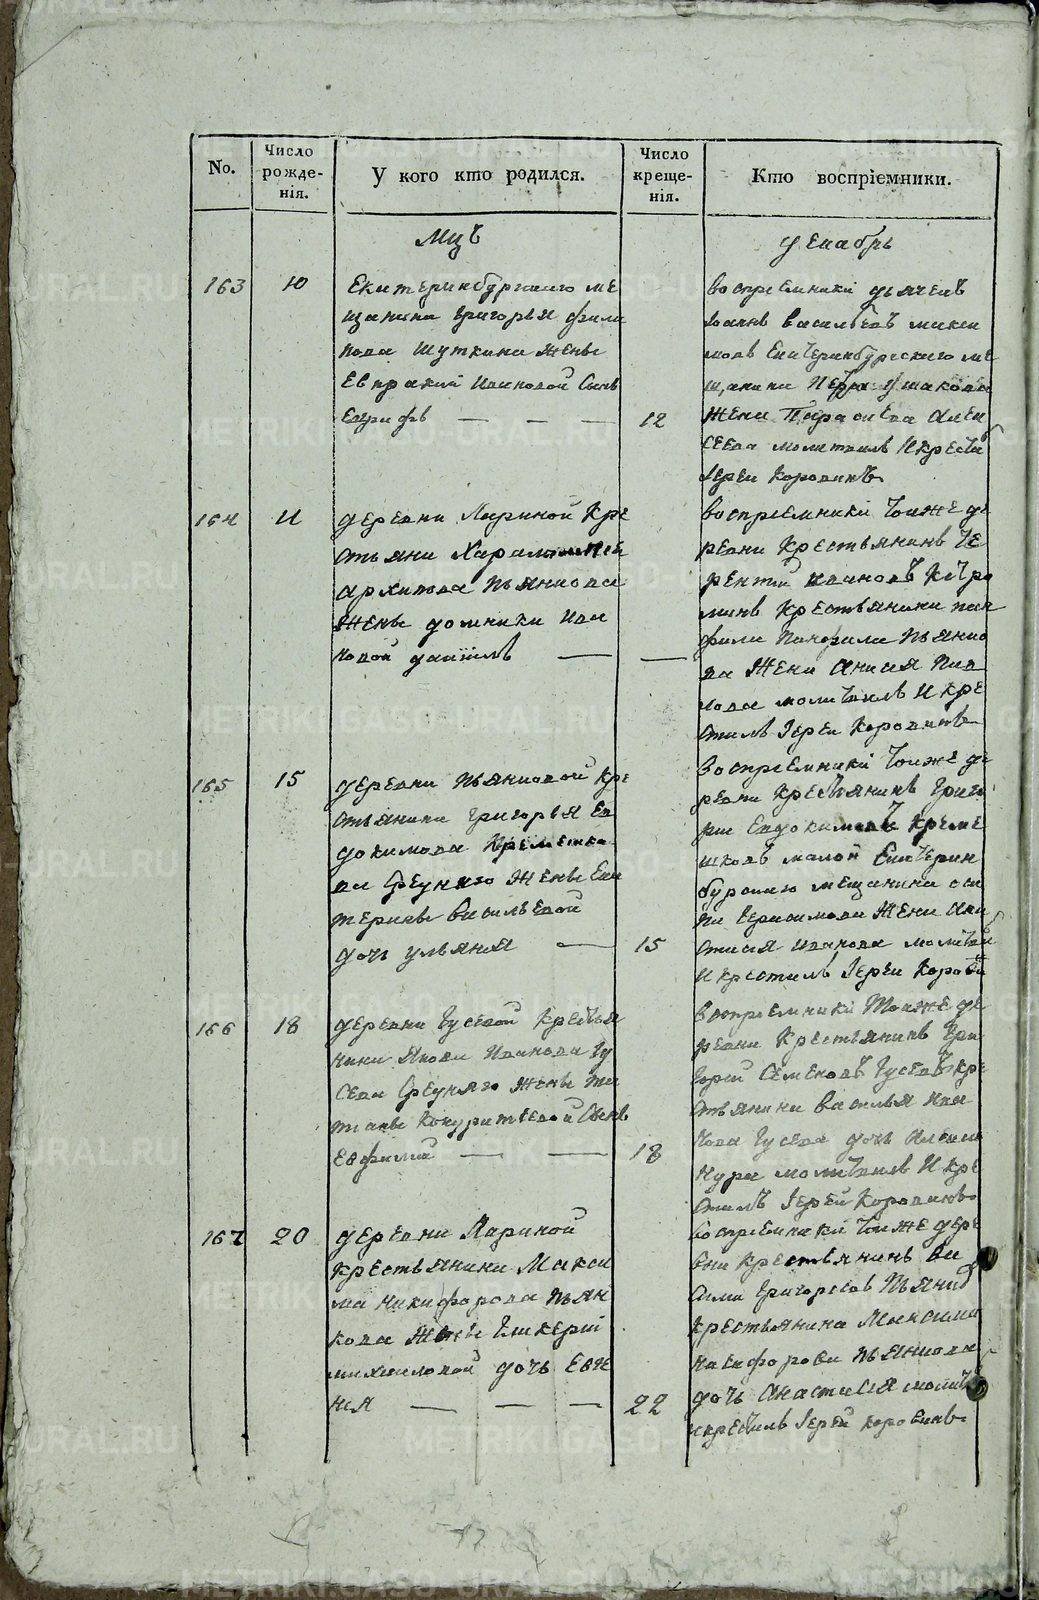 No.
Число рожде-нія.
У кого кто родился.
Число креще-нія.
Кто воспріемники.
Мцъ
декабрь
163
10
Екатеринбургскаго ме
щанина Григорья фили
пова Шуткина жены
Евпраксіи Ивановой Сынъ
12
воспріемники дьячекъ
Іоаннъ васильевъ макси
мовъ Екатеринбургскаго ме
щанина Петра Ушакова
жена Параскева Алек
сеева молитвилъ И крестилъ
Іереи Коровинъ
164
11
деревни Лариной Кре
стьянина
архипова Пьянкова
жены домники Ива
новой даніилъ
воспріемники тоиже де
ревни Крестьянинъ Те
рентій ивановъ
Крестьянина пан
фила Панфила Пьянко
ва жена Анисія Пав
лова молитвилъ И кре
стилъ Іереи Коровинъ
165
15
деревни Пьянковой Кре
стьянина Григорья Ев
докимова Кремешко
ва Среднаго жены Ека
терины васильевой
дочь ульянія
15
воспріемники тоиже де
ревни Крестьянинъ Григо
рій Евдокимовъ Креме
шковъ малой Екатерин
бургскаго мещанина оси
па Герасимова жена Ана
стасія иванова молитвилъ
И крестилъ Іереи Коровинъ
166
18
деревни Гусевой Крестья
нина Якова Иванова Гу
сева Средняго жены Та
тіаны Кондратьевой Сынъ
Евфимій
18
воспріемники Тоиже де
ревни Крестьянинъ Гри
горій Семеновъ Гусевъ кре
стьянина василья Ива
нова Гусева дочь
молитвилъ И кре
стилъ Іереи Коровинъ
167
20
деревни Лариной
Крестьянина Макси
ма Никифорова Пьян
кова жены Гликеріи
михаиловой дочь Евге
нія
22
воспріемники тоиже дере
вни Крестьянинъ Ва
силій Григорьевъ Пьянков
крестьянина Максима
Никифорова Пьянкова
дочь Анастасія молитв
и крестилъ Іереи коровинъ